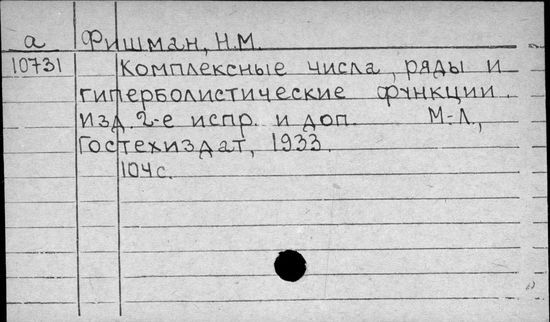 а Фишман, Н.М.
10731 Комплексные числа, ряды и
гиперболистические функции.
Изд. 2-е испр. и доп. М.-Л.,
Гостехиздат, 1933.
104с.